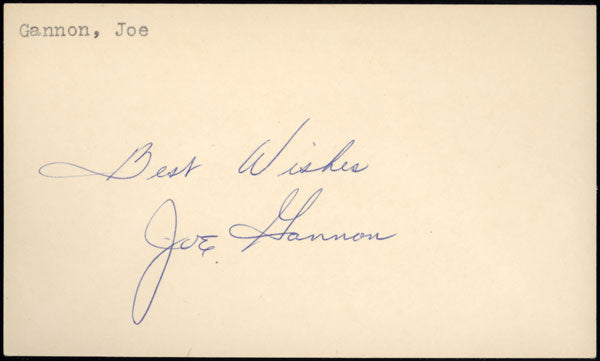 Gannon, Joe
Best Wishes
Joe Gannon